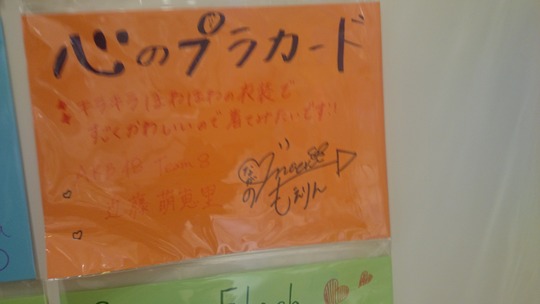 心のプラカード
キラキラほわほわの衣装で
すごくかわいいので着てみたいです!!
AKB48 Team 8
近藤萌恵里
もえりん